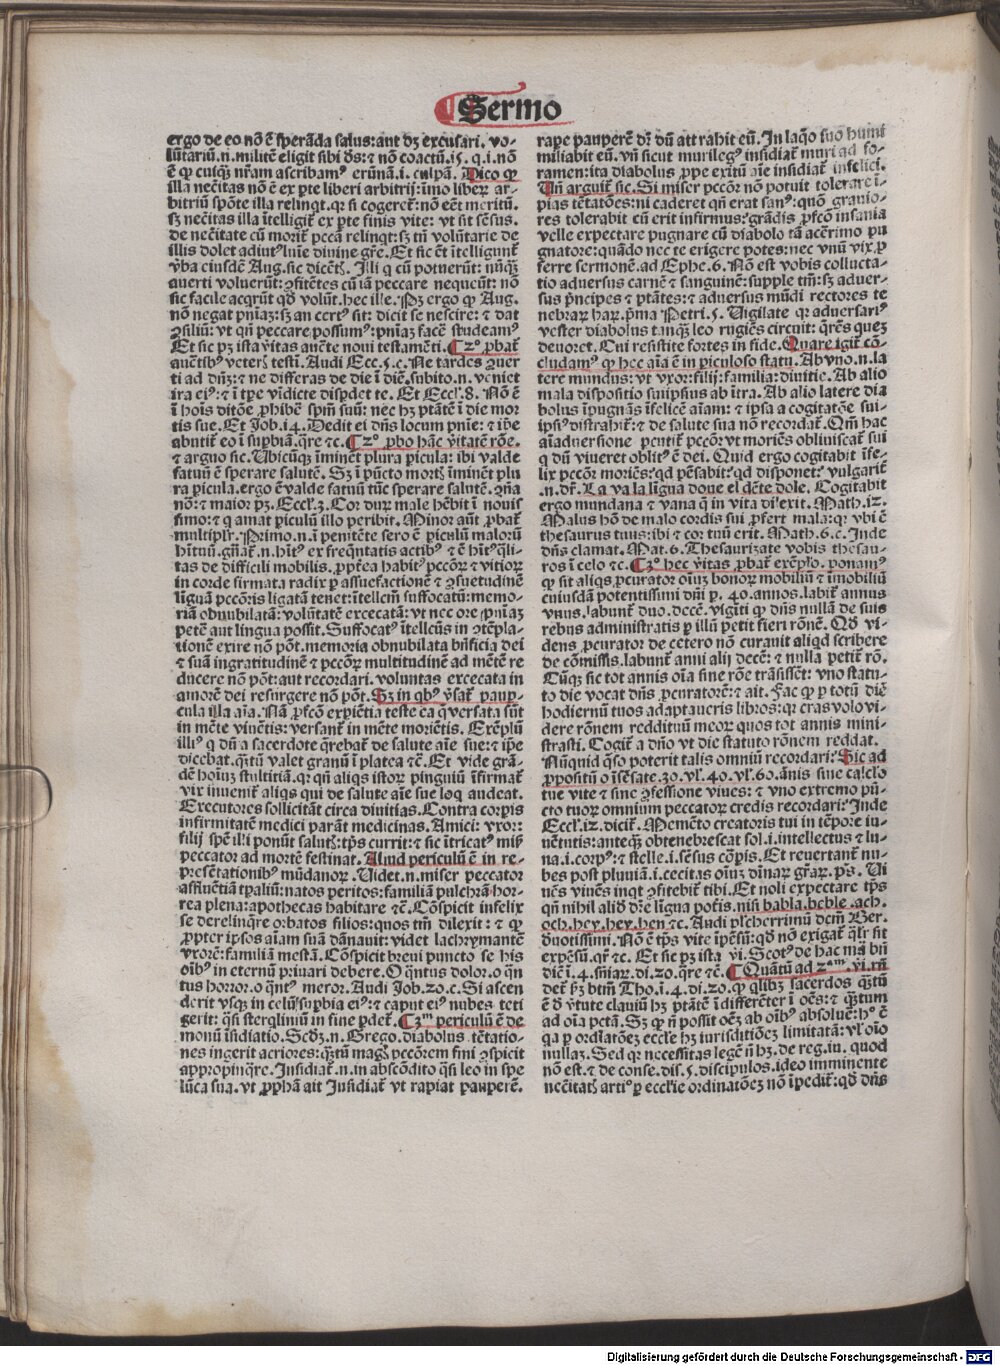 Sermo
ergo de eo nō ē sperāda salus: aut dꝫ excusari. vo-
lūtariū.n. militē eligit sibi dñs: ⁊ nō coactū.15. q.i. nō
ē ꝙ cuiq̄ꝫ nr̄am ascribamꝰ erūnā.i. culpā. Dico ꝙ
illa necītas nō ē ex ꝑte liberi arbitrij: īmo liberꝝ ar-
bitriū spōte illa relinqt. qꝛ si cogeret᷑: nō eēt meritū.
sꝫ necītas illa ītelligit᷑ ex ꝑte finis vite: vt sit sēsus.
de necītate cū morit᷑ pccā relinqt: sꝫ tn̄ volūtarie de
illis dolet adiutꝰ lūie diuine grē. Et sic ēt ītelligunt᷑
v̄ba eiusdē Aug. sic dicētꝭ. Illi q cū potuerūt: nūq̄ꝫ
auerti voluerūt: ꝯfitētes cū iā peccare nequeūt: nō
sic facile acqrūt qd̄ volūt. hec ille. Pꝫ ergo ꝙ Aug.
nō negat pn̄iaꝫ: sꝫ an certꝰ sit: dicit se nescire: ⁊ dat
ꝯsiliū: vt qn̄ peccare possumꝰ: pn̄iaꝫ facē studeamꝰ
Et sic pꝫ ista vitas auc̄te noui testamēti. ¶ 2º ꝓbat᷑
auc̄tibꝰ veterꝭ testi. Audi Ecc.5.c. Ne tardes ꝯuer
ti ad dn̄ꝫ: ⁊ ne differas de die ī diē. subito.n. veniet
ira eiꝰ: ⁊ ī tp̄e vīdicte disp̄det te. Et Eccl̓.8. Nō ē
ī hois ditōe ꝓhibē sp̄m suū: nec hꝫ ptātē ī die mor
tis sue. Et Job.14. Dedit ei dn̄s locum pn̄ie: ⁊ ip̄e
abutit᷑ eo ī suꝑbiā. qre ⁊c. ¶ 2º ꝓbo hāc v̄itatē rōe.
⁊ arguo sic. Ubicūqꝫ īminēt plura ꝑicula: ibi valde
fatuū ē sperare salutē. Sꝫ ī pūcto mortꝭ īminēt plu
ra ꝑicula. ergo ē valde fatuū tūc sperare salutē. ꝯn̄a
nō: ⁊ maior pꝫ. Eccl̓.3. Cor durꝝ male hēbit ī nouis
simo: ⁊ q amat ꝑiculū illo peribit. Minor aūt ꝓbat᷑
multipl̓r. Primo.n. ī penitēte sero ē ꝑiculū malorū
hītuū. gn̄at᷑.n. hītꝰ ex freqntatis actibꝰ ⁊ ē hītꝰ qli-
tas de difficili mobilis. ꝓpt̓ea habitꝰ pccōꝝ ⁊ vitioꝝ
in corde firmata radix ꝑ assuefactionē ⁊ ꝯsuetudinē
līguā pccōris ligatā tenet: ītellcm̄ suffocatū: memo-
riā obnubilatā: volūtatē excecatā: vt nec ore pn̄iaꝫ
petē aut lingua possit. Suffocatꝰ ītellcūs in ꝯtēpla-
tionē exire nō pōt. memoria obnubilata bn̄ficia dei
⁊ suā ingratitudinē ⁊ pccōꝝ multitudinē ad mētē re
ducere nō pōt: aut recordari. voluntas excecata in
amorē dei resurgere nō pōt. Sꝫ in qbꝰ v̄sat᷑ pauꝑ-
cula illa aīa. Nā ꝓfcō expiētia teste ea q̄ versata sūt
in mēte viuētis: versant᷑ in mēte moriētis. Exēplū
illiꝰ q dū a sacerdote qrebat᷑ de salute aīe sue: ⁊ ip̄e
dicebat. q̄tū valet granū ī platea ⁊c. Et vide grā-
dē hoīuꝫ stultitiā. qꝛ qn̄ aliqs istoꝝ pinguiū īfirmat᷑
vix inuenit᷑ aliqs qui de salute aīe sue loq audeat.
Executores sollicitāt circa diuitias. Contra corpis
infirmitatē medici parāt medicinas. Amici: vxor:
filij spē illi ponūt salutꝭ: tp̄s currit: ⁊ sic ītricatꝰ misꝭ
peccator ad mortē festinat. Aliud periculū ē in re-
presētationibꝰ mūdanoꝝ. Uidet.n. miser peccator
affluētiā tp̄aliū: natos peritos: familiā pulchrā: hor-
rea plena: apothecas habitare ⁊c. Cōspicit infelix
se derelinq̄re orbatos filios: quos tm̄ dilexit: ⁊ ꝙ
ꝓpter ip̄sos aīam suā dānauit: videt lachrymantē
vxorē: familiā mestā. Cōspicit breui puncto se his
oībꝰ in eternū priuari debere. O q̄ntus dolor. o q̄n
tus horror. o q̄ntꝰ meror. Audi Job.20.c. Si ascen
derit vsqꝫ in celū suꝑbia eiꝰ: ⁊ caput eiꝰ nubes teti
gerit: q̄si sterqliniū in fine ꝑdet᷑. ¶ 3ᵐ periculū ē de
monū īsidiatio. Scd̄ꝫ.n. Grego. diabolus tētatio-
nes ingerit acriores: q̄ꝫtū magꝭ pccōrem fini ꝯspicit
appropinq̄re. Insidiat᷑.n. in abscōdito q̄si leo in spe
lūca sua. vt ꝓphā ait Insidiat᷑ vt rapiat pauperē.
rape pauperē dr̄ dū attrahit eū. In laqo suo humi
miliabit eū. vn̄ sicut murilegꝰ insidiat᷑ muri ad fo-
ramen: ita diabolus ꝓpe exitū aīe insidiat᷑ infelici.
Un̄ arguit᷑ sic. Si miser pccōr nō potuit tolerare ī-
pias tētatōes: ni caderet qn̄ erat sanꝰ: quō grauio-
res tolerabit cū erit infirmus: grādis ꝓfcō insania
velle expectare pugnare cū diabolo tā acērimo pu
gnatore: quādo nec te erigere potes: nec vnū vix ꝓ
ferre sermonē. ad Ephe.6. Nō est vobis collucta-
tio aduersus carnē ⁊ sanguinē: supple tm̄: sꝫ aduer-
sus p̄ncipes ⁊ ptātes: ⁊ aduersus mūdi rectores te
nebrarꝝ harꝝ. p̄ma Petri.5. Uigilate qꝛ aduersariꝰ
vester diabolus tanq̄ꝫ leo rugiēs circuit: q̄rēs queꝫ
deuoret. Cui resistite fortes in fide. Quare igit᷑ cō-
cludamꝰ ꝙ hec aīa ē in ꝑiculoso statu. Ab vno.n. la
tere mundus: vt vxor: filij: familia: diuitie. Ab alio
mala dispositio suiipsius ab ītra. Ab alio latere dia
bolus īpugnās īfelicē aīam: ⁊ ipsa a cogitatōe sui-
ip̄siꝰ distrahit᷑: ⁊ de salute sua nō recordat᷑. Qm̄ hac
aīaduersione ꝑcutit᷑ pccōr vt moriēs obliuiscat᷑ sui
q dū viueret oblitꝰ ē dei. Quid ergo cogitabit īfe-
lix pccōr moriēs: qd pēsabit: qd disponet: vulgarit᷑
.n. dr̄. La va la līgua doue el dēte dole. Cogitabit
ergo mundana ⁊ vana q̄ in vita dilexit. Math.12.
Malus hō de malo cordis sui ꝓfert mala: qꝛ vbi ē
thesaurus tuus: ibi ⁊ cor tuū erit. Math.6.c. Inde
dn̄s clamat. Mat.6. Thesaurizate vobis thesau-
ros ī celo ⁊c. ¶ 3º hec v̄itas ꝓbat᷑ exēplo. ponamꝰ
ꝙ sit aliqs ꝓcurator oīuꝫ bonoꝝ mobiliū ⁊ īmobiliū
cuiusdā potentissimi dn̄i ꝑ.40.annos. labit᷑ annus
vnus. labunt᷑ duo. decē. vigīti ꝙ dn̄s nullā de suis
rebus administratis ꝑ illū petit fieri rōnē. Qd̄ vi-
dens ꝓcurator de cetero nō curauit aliqd scribere
de cōmissis. labunt᷑ anni alij decē: ⁊ nulla petit᷑ rō.
Tūqꝫ sic tot annis oīa sine rōe trāsissēt: vno statu-
to die vocat dn̄s ꝓcuratorē: ⁊ ait. Fac ꝙ ꝑ totū diē
hodiernū tuos adaptaueris libros: qꝛ cras volo vi-
dere rōnem reddituū meoꝝ quos tot annis mini-
strasti. Cogit᷑ a dn̄o vt die statuto rōnem reddat.
Nūquid q̄so poterit talis omniū recordari: Sic ad
ꝓpositū o īsēsate.30.vl̓.40.vl̓.60.ānis sine calclo
tue vite ⁊ sine ꝯfessione viues: ⁊ vno extremo pū-
cto tuoꝝ omnium peccatoꝝ credis recordari: Inde
Eccl̓.12. dicit᷑. Memēto creatoris tui in tēpore iu-
uētutis: anteq̄ꝫ obtenebrescat sol.i. intellectus ⁊ lu-
na.i. corpꝰ: ⁊ stelle.i. sēsus cōꝑis. Et reuertant᷑ nu-
bes post pluuiā.i. cecitas oīuꝫ diuīaꝝ gr̄aꝝ. pꝰ. Ui
uēs viuēs inqt ꝯfitebit᷑ tibi. Et noli expectare tp̄s
qn̄ nihil aliđ dr̄e līgua potꝭs. nisi babla. beble. ach.
och. hey. hey. heu ⁊c. Audi plcherrimū dcm̄ Ber.
dñotissimi. Nō ē tp̄s vite īpēsū: qd̄ nō exigat᷑ q̄lr̄ sit
expēsū. qr̄ ⁊c. Et sic pꝫ ista v̄i. Scotꝰ de hac mā bn̄
diē ī.4. sn̄iaꝝ. di.20. qre ⁊c. ¶ Quātū ad 2ᵃᵐ. v̄i. rn̄
det᷑ ẖꝫ btm̄ Tho. ī.4. di.20. ꝙ qlibꝫ sacerdos q̄ꝫtū
ē đ v̄tute clauiū hꝫ ptātē īdifferēter ī oēs: ⁊ q̄ꝫtum
ad oīa pctā. Sꝫ ꝙ nō possit oēꝫ ab oībꝰ absolue: hº ē
qa ꝑ ordīatōeꝫ eccl̓e hꝫ iurisdictiōeꝫ limitatā: vl̓ oīo
nullaꝫ. Sed qꝛ necessitas legē nō hꝫ. de reg. iu. quod
nō est. ⁊ de conse. dis.5. discipulos. ideo imminente
necītatꝭ artiº ꝑ eccl̓ie ordinatōeꝫ nō īpedit᷑: qd̄ dn̄s
Digitalisierung gefördert durch die Deutsche Forschungsgemeinschaft - DFG